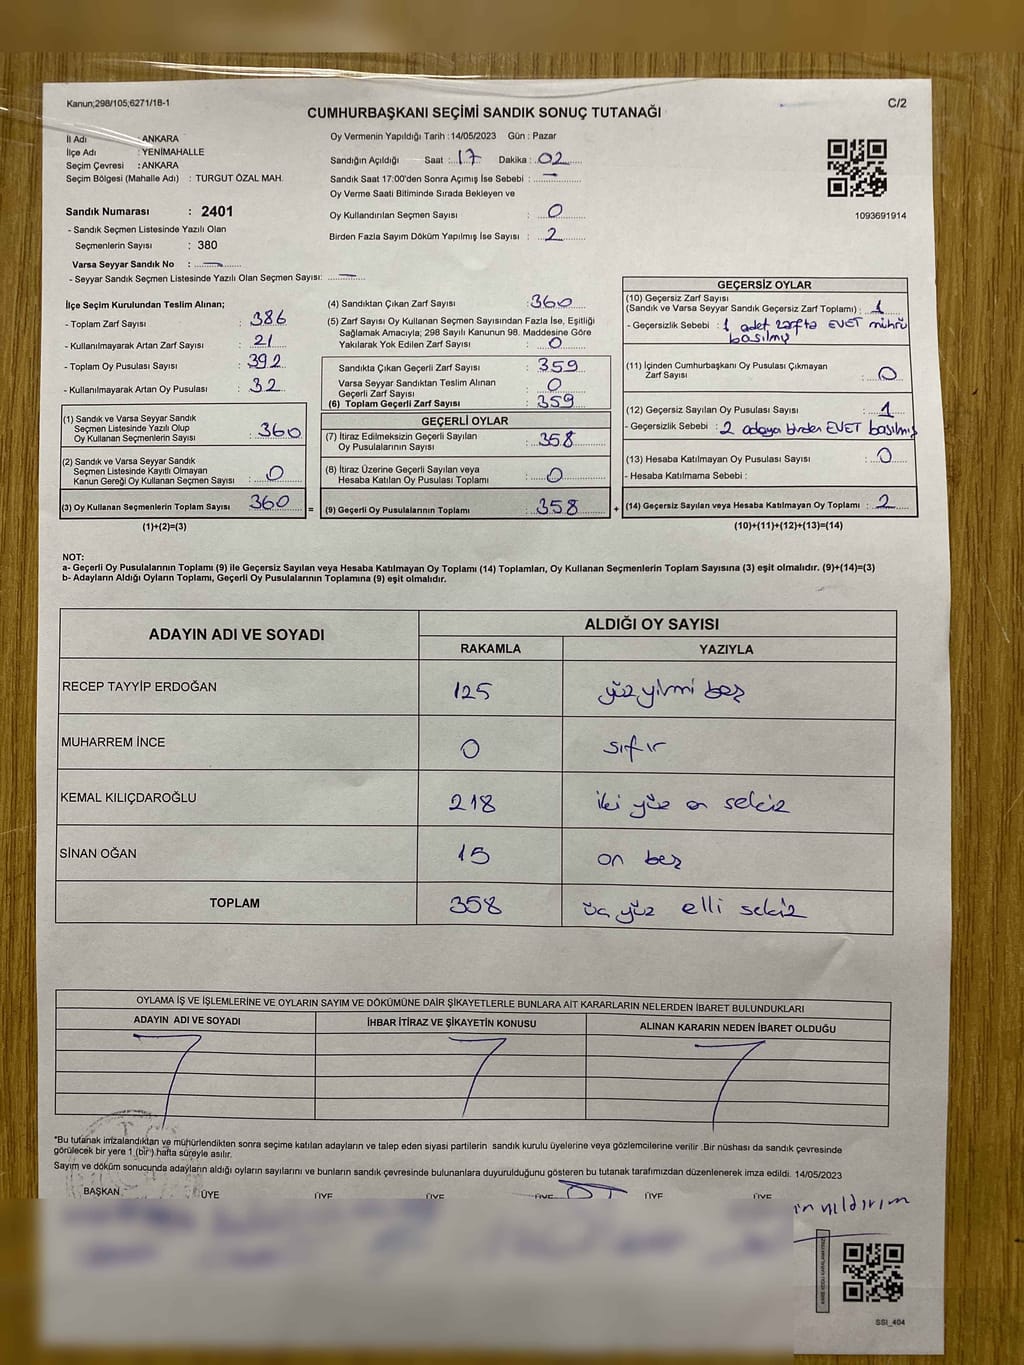 Kanun;298/105;6271/18-1
C/2
CUMHURBAŞKANI SEÇİMİ SANDIK SONUÇ TUTANAĞI
İl Adı : ANKARA
İlçe Adı : YENİMAHALLE
Seçim Çevresi : ANKARA
Seçim Bölgesi (Mahalle Adı) : TURGUT ÖZAL MAH.
Sandık Numarası : 2401
- Sandık Seçmen Listesinde Yazılı Olan
Seçmenlerin Sayısı : 380
Varsa Seyyar Sandık No : —
- Seyyar Sandık Seçmen Listesinde Yazılı Olan Seçmen Sayısı: —
Oy Vermenin Yapıldığı Tarih : 14/05/2023 Gün : Pazar
Sandığın Açıldığı Saat : 17 Dakika : 02
Sandık Saat 17:00'den Sonra Açımış İse Sebebi : —
Oy Verme Saati Bitiminde Sırada Bekleyen ve
Oy Kullandırılan Seçmen Sayısı : 0
Birden Fazla Sayım Döküm Yapılmış İse Sayısı : 2
1093691914
İlçe Seçim Kurulundan Teslim Alınan;
- Toplam Zarf Sayısı : 386
- Kullanılmayarak Artan Zarf Sayısı : 21
- Toplam Oy Pusulası Sayısı : 392
- Kullanılmayarak Artan Oy Pusulası : 32
(1) Sandık ve Varsa Seyyar Sandık
Seçmen Listesinde Yazılı Olup
Oy Kullanan Seçmenlerin Sayısı : 360
(2) Sandık ve Varsa Seyyar Sandık
Seçmen Listesinde Kayıtlı Olmayan
Kanun Gereği Oy Kullanan Seçmen Sayısı : 0
(3) Oy Kullanan Seçmenlerin Toplam Sayısı 360 =
(1)+(2)=(3)
(4) Sandıktan Çıkan Zarf Sayısı : 360
(5) Zarf Sayısı Oy Kullanan Seçmen Sayısından Fazla İse, Eşitliği
Sağlamak Amacıyla; 298 Sayılı Kanunun 98. Maddesine Göre
Yakılarak Yok Edilen Zarf Sayısı : 0
Sandıkta Çıkan Geçerli Zarf Sayısı : 359
Varsa Seyyar Sandıktan Teslim Alınan
Geçerli Zarf Sayısı : 0
(6) Toplam Geçerli Zarf Sayısı : 359
GEÇERLİ OYLAR
(7) İtiraz Edilmeksizin Geçerli Sayılan
Oy Pusulalarının Sayısı : 358
(8) İtiraz Üzerine Geçerli Sayılan veya
Hesaba Katılan Oy Pusulası Toplamı : 0
(9) Geçerli Oy Pusulalarının Toplamı : 358 +
GEÇERSİZ OYLAR
(10) Geçersiz Zarf Sayısı
(Sandık ve Varsa Seyyar Sandık Geçersiz Zarf Toplamı) : 1
- Geçersizlik Sebebi : 1 adet zarfta EVET mührü
basılmış
(11) İçinden Cumhurbaşkanı Oy Pusulası Çıkmayan
Zarf Sayısı : 0
(12) Geçersiz Sayılan Oy Pusulası Sayısı : 1
- Geçersizlik Sebebi : 2 adaya birden EVET basılmış
(13) Hesaba Katılmayan Oy Pusulası Sayısı : 0
- Hesaba Katılmama Sebebi :
(14) Geçersiz Sayılan veya Hesaba Katılmayan Oy Toplamı : 2
(10)+(11)+(12)+(13)=(14)
NOT:
a- Geçerli Oy Pusulalarının Toplamı (9) ile Geçersiz Sayılan veya Hesaba Katılmayan Oy Toplamı (14) Toplamları, Oy Kullanan Seçmenlerin Toplam Sayısına (3) eşit olmalıdır. (9)+(14)=(3)
b- Adayların Aldığı Oyların Toplamı, Geçerli Oy Pusulalarının Toplamına (9) eşit olmalıdır.
ADAYIN ADI VE SOYADI
ALDIĞI OY SAYISI
RAKAMLA YAZIYLA
RECEP TAYYİP ERDOĞAN 125 yüz yirmi beş
MUHARREM İNCE 0 sıfır
KEMAL KILIÇDAROĞLU 218 iki yüz on sekiz
SİNAN OĞAN 15 on beş
TOPLAM 358 üç yüz elli sekiz
OYLAMA İŞ VE İŞLEMLERİNE VE OYLARIN SAYIM VE DÖKÜMÜNE DAİR ŞİKAYETLERLE BUNLARA AİT KARARLARIN NELERDEN İBARET BULUNDUKLARI
ADAYIN ADI VE SOYADI İHBAR İTİRAZ VE ŞİKAYETİN KONUSU ALINAN KARARIN NEDEN İBARET OLDUĞU
*Bu tutanak imzalandıktan ve mühürlendikten sonra seçime katılan adayların ve talep eden siyasi partilerin sandık kurulu üyelerine veya gözlemcilerine verilir .Bir nüshası da sandık çevresinde
görülecek bir yere 1 (bir) hafta süreyle asılır.
Sayım ve döküm sonucunda adayların aldığı oyların sayılarını ve bunların sandık çevresinde bulunanlara duyurulduğunu gösteren bu tutanak tarafımızdan düzenlenerek imza edildi. 14/05/2023
BAŞKAN ÜYE ÜYE ÜYE ÜYE ÜYE ÜYE
yıldırım
SSI_404